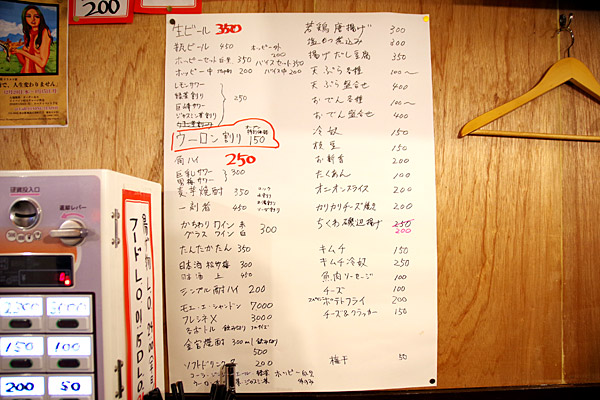 生ビール 350
瓶ビール 450
ホッピーセット白黒 350
ホッピー外 200
バイスセット 350
ホッピー中 200
バイス中 200
レモンサワー
緑茶割り
巨峰サワー
ジャスミン茶割り
250
ウーロン割り 150
角ハイ 250
巨乳サワー
黒梅サワー
300
麦芋焼酎 350
一刻者 450
かちわりワイン 赤
グラスワイン 白
300
たんたかたん 350
日本酒 松竹梅 300
日本酒 上 450
シンプル酎ハイ 200
モエ・エ・シャンドン 7000
フレシネX 3000
金宮焼酎 300ml
500
ソフトドリンク 200
若鶏唐揚げ 300
塩もつ煮込み 300
揚げだし豆腐 350
天ぷら各種 100〜
天ぷら盛合せ 400
おでん各種 100〜
おでん盛合せ 400
冷奴 150
枝豆 150
お新香 200
たくあん 100
オニオンスライス 200
カリカリチーズ焼き 200
ちくわ磯辺揚げ 250
200
キムチ 150
キムチ冷奴 250
魚肉ソーセージ 100
チーズ 100
ポテトフライ 200
チーズ&クラッカー 150
梅干 50
200
人生変わりません。
硬貨投入口
返却レバー
フード
150
100
200
50